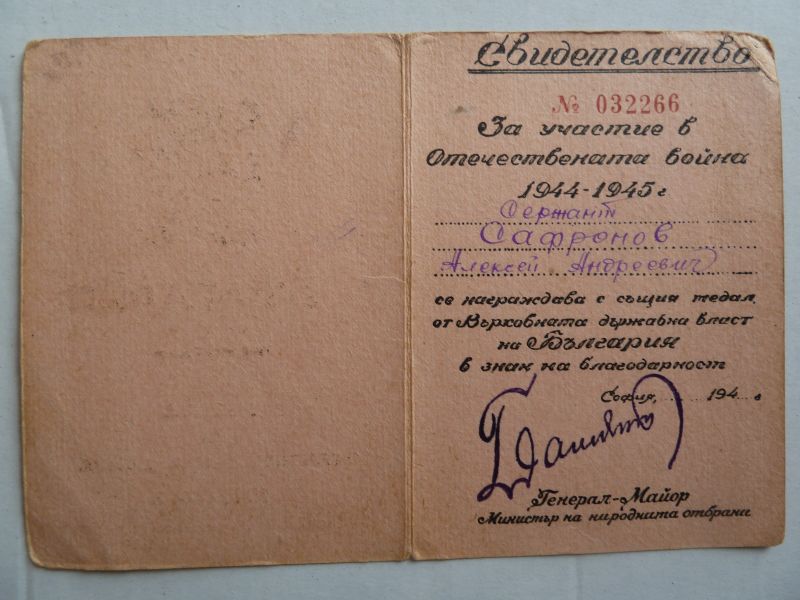 Свидетелство
№ 032266
За участие в
Отечествената война
1944-1945 г
Сержант
Сафронов
Алексей Андреевич
се награждава с същия медал
от Върховната държавна власт
на България
в знак на благодарност
София, ..... 194... г
Генерал-Майор
Министър на народната отбрана